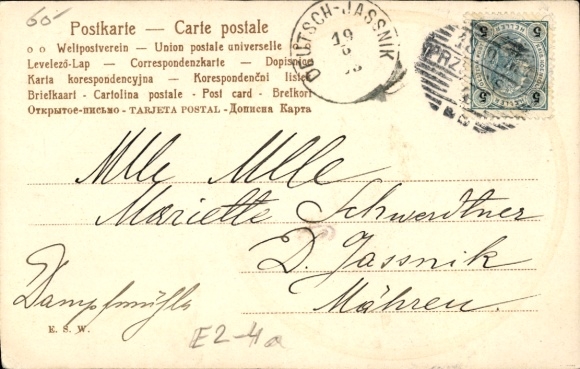 60-
Postkarte — Carte postale
Weltpostverein – Union postale universelle
Levelező-Lap — Correspondenzkarte — Dopisnice
Karta korespondencyjna — Korespondenční lístek
Brielkaart - Cartolina postale - Post card - Brefkort
Открытое-письмо - TARJETA POSTAL - Дописна Карта
DEUTSCH-JASSNIK
19
5
5
Mlle Mlle
Mariette Schwerdtner
D. Jassnik
Mähren.
Dampfmühle
E. S. W.
E2-4a